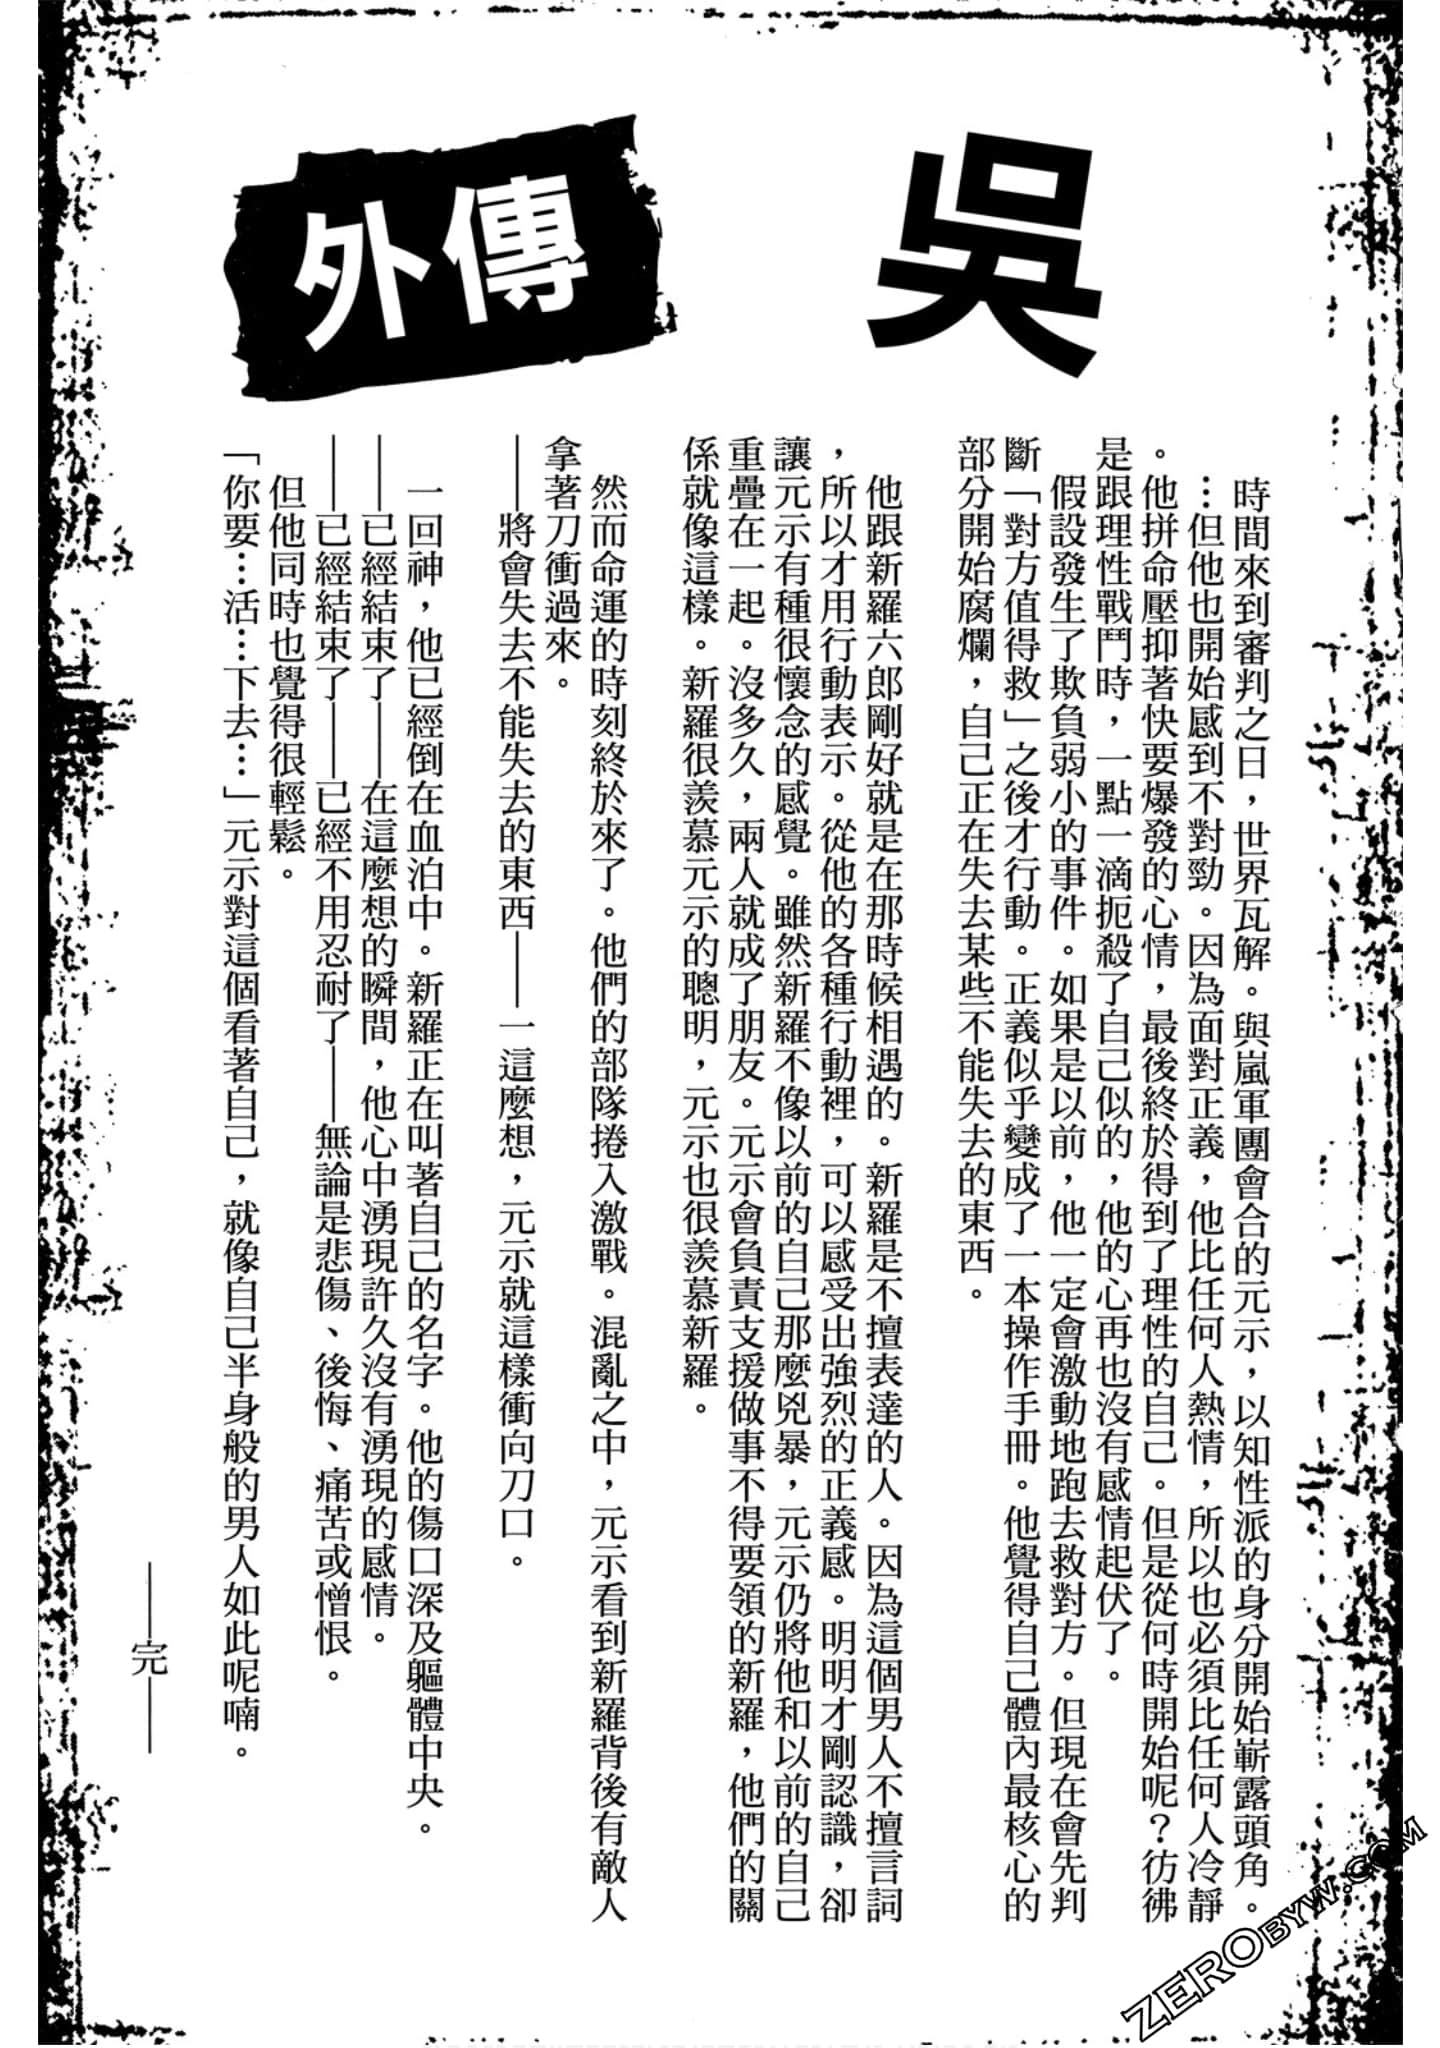 吳
外傳
時間來到審判之日，世界瓦解。與嵐軍團會合的元示，以知性派的身分開始嶄露頭角。
…但他也開始感到不對勁。因為面對正義，他比任何人熱情，所以也必須比任何人冷靜
。他拼命壓抑著快要爆發的心情，最後終於得到了理性的自己。但是從何時開始呢？彷彿
是跟理性戰鬥時，一點一滴扼殺了自己似的，他的心再也沒有感情起伏了。
假設發生了欺負弱小的事件。如果是以前，他一定會激動地跑去救對方。但現在會先判
斷「對方值得救」之後才行動。正義似乎變成了一本操作手冊。他覺得自己體內最核心的
部分開始腐爛，自己正在失去某些不能失去的東西。
他跟新羅六郎剛好就是在那時候相遇的。新羅是不擅表達的人。因為這個男人不擅言詞
，所以才用行動表示。從他的各種行動裡，可以感受出強烈的正義感。明明才剛認識，卻
讓元示有種很懷念的感覺。雖然新羅不像以前的自己那麼兇暴，元示仍將他和以前的自己
重疊在一起。沒多久，兩人就成了朋友。元示會負責支援做事不得要領的新羅，他們的關
係就像這樣。新羅很羨慕元示的聰明，元示也很羨慕新羅。
然而命運的時刻終於來了。他們的部隊捲入激戰。混亂之中，元示看到新羅背後有敵人
拿著刀衝過來。
——將會失去不能失去的東西——一這麼想，元示就這樣衝向刀口。
一回神，他已經倒在血泊中。新羅正在叫著自己的名字。他的傷口深及軀體中央。
——已經結束了——在這麼想的瞬間，他心中湧現許久沒有湧現的感情。
——已經結束了——已經不用忍耐了——無論是悲傷、後悔、痛苦或憎恨。
但他同時也覺得很輕鬆。
「你要…活…下去…」元示對這個看著自己，就像自己半身般的男人如此呢喃。
——完——
ZEROBYW.COM